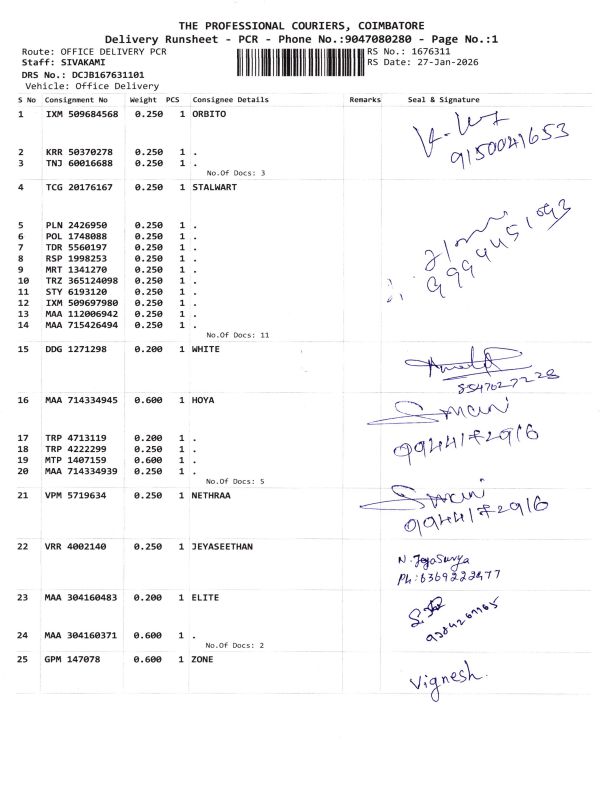 THE PROFESSIONAL COURIERS, COIMBATORE
Delivery Runsheet - PCR - Phone No.:9047080280 - Page No.:1
Route: OFFICE DELIVERY PCR RS No.: 1676311
Staff: SIVAKAMI RS Date: 27-Jan-2026
DRS No.: DCJB167631101
Vehicle: Office Delivery
S No Consignment No Weight PCS Consignee Details Remarks Seal & Signature
1 IXM 509684568 0.250 1 ORBITO
9150041653
2 KRR 50370278 0.250 1 .
3 TNJ 60016688 0.250 1 .
No.Of Docs: 3
4 TCG 20176167 0.250 1 STALWART
5 PLN 2426950 0.250 1 .
6 POL 1748088 0.250 1 .
7 TDR 5560197 0.250 1 .
8 RSP 1998253 0.250 1 .
9 MRT 1341270 0.250 1 .
10 TRZ 365124098 0.250 1 .
11 STY 6193120 0.250 1 .
12 IXM 509697980 0.250 1 .
13 MAA 112006942 0.250 1 .
14 MAA 715426494 0.250 1 .
No.Of Docs: 11
15 DDG 1271298 0.200 1 WHITE
16 MAA 714334945 0.600 1 HOYA
9944172916
17 TRP 4713119 0.200 1 .
18 TRP 4222299 0.250 1 .
19 MTP 1407159 0.600 1 .
20 MAA 714334939 0.250 1 .
No.Of Docs: 5
21 VPM 5719634 0.250 1 NETHRAA
9944172916
22 VRR 4002140 0.250 1 JEYASEETHAN
N. JeyaSurya
Ph: 6369222477
23 MAA 304160483 0.200 1 ELITE
24 MAA 304160371 0.600 1 .
No.Of Docs: 2
25 GPM 147078 0.600 1 ZONE
Vignesh.